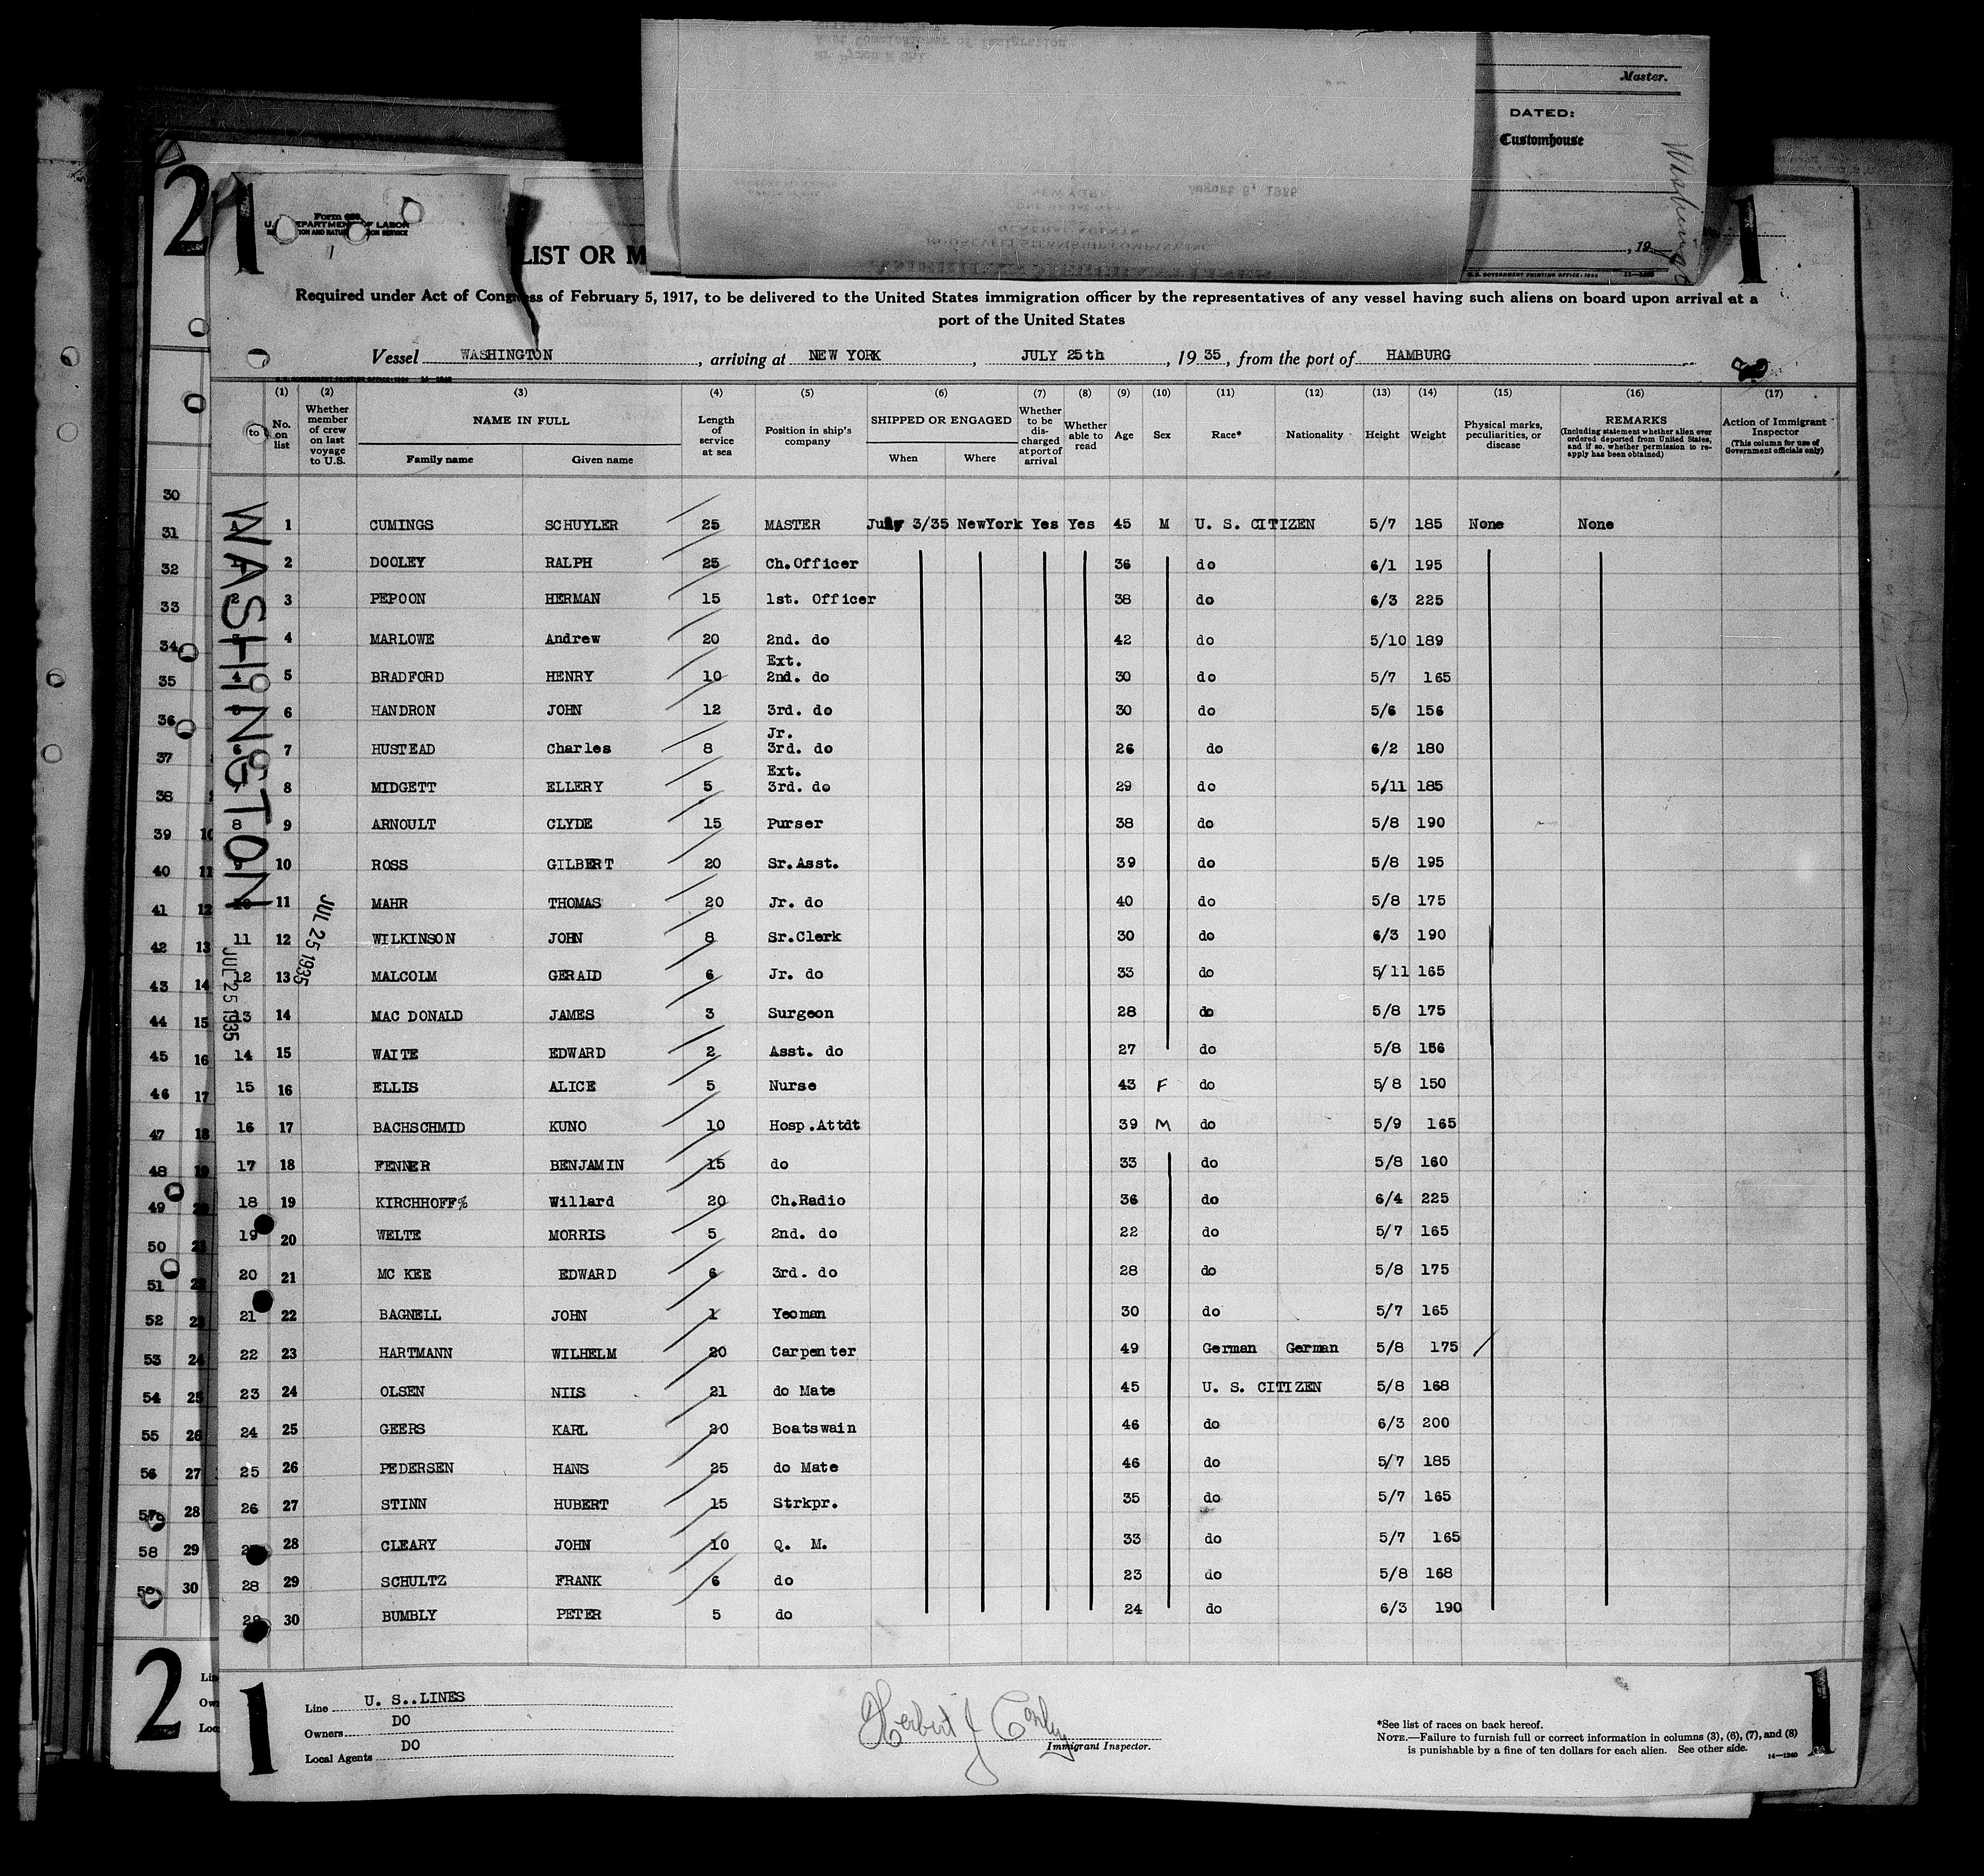 Master.
DATED:
Customhouse
, 19
2
1
1
Form 680
U. S. DEPARTMENT OF LABOR
LIST OR M
Required under Act of Congress of February 5, 1917, to be delivered to the United States immigration officer by the representatives of any vessel having such aliens on board upon arrival at a
port of the United States
Vessel WASHINGTON, arriving at NEW YORK, JULY 25th, 19 35, from the port of HAMBURG
(1) (2) (3) (4) (5) (6) (7) (8) (9) (10) (11) (12) (13) (14) (15) (16) (17)
No. on list
Whether member of crew on last voyage to U.S.
NAME IN FULL
Family name Given name
Length of service at sea
Position in ship's company
SHIPPED OR ENGAGED
When Where
Whether to be discharged at port of arrival
Whether able to read
Age
Sex
Race*
Nationality
Height
Weight
Physical marks, peculiarities, or disease
REMARKS
(Including statement whether alien ever ordered deported from United States, and if so, whether permission to reapply has been obtained)
Action of Immigrant Inspector
(This column for use of Government officials only)
WASHINGTON
JUL 25 1935
JUL 25 1935
1 CUMINGS SCHUYLER 25 MASTER July 3/35 NewYork Yes Yes 45 M U. S. CITIZEN 5/7 185 None None
2 DOOLEY RALPH 25 Ch.Officer 36 do 6/1 195
3 PEPOON HERMAN 15 1st. Officer 38 do 6/3 225
4 MARLOWE Andrew 20 2nd. do 42 do 5/10 189
5 BRADFORD HENRY 10 Ext. 2nd. do 30 do 5/7 165
6 HANDRON JOHN 12 3rd. do 30 do 5/6 156
7 HUSTEAD Charles 8 Jr. 3rd. do 26 do 6/2 180
8 MIDGETT ELLERY 5 Ext. 3rd. do 29 do 5/11 185
9 ARNOULT CLYDE 15 Purser 38 do 5/8 190
10 ROSS GILBERT 20 Sr.Asst. 39 do 5/8 195
11 MAHR THOMAS 20 Jr. do 40 do 5/8 175
12 WILKINSON JOHN 8 Sr.Clerk 30 do 6/3 190
13 MALCOLM GERALD 6 Jr. do 33 do 5/11 165
14 MAC DONALD JAMES 3 Surgeon 28 do 5/8 175
15 WAITE EDWARD 2 Asst. do 27 do 5/8 156
16 ELLIS ALICE 5 Nurse 43 F do 5/8 150
17 BACHSCHMID KUNO 10 Hosp.Attdt 39 M do 5/9 165
18 FENNER BENJAMIN 15 do 33 do 5/8 160
19 KIRCHHOFF% Willard 20 Ch.Radio 36 do 6/4 225
20 WELTE MORRIS 5 2nd. do 22 do 5/7 165
21 MC KEE EDWARD 6 3rd. do 28 do 5/8 175
22 BAGNELL JOHN 1 Yeoman 30 do 5/7 165
23 HARTMANN WILHELM 20 Carpenter 49 German German 5/8 175
24 OLSEN NILS 21 do Mate 45 U. S. CITIZEN 5/8 168
25 GEERS KARL 20 Boatswain 46 do 6/3 200
26 PEDERSEN HANS 25 do Mate 46 do 5/7 185
27 STINN HUBERT 15 Strkpr. 35 do 5/7 165
28 CLEARY JOHN 10 Q. M. 33 do 5/7 165
29 SCHULTZ FRANK 6 do 23 do 5/8 168
30 BUMBLY PETER 5 do 24 do 6/3 190
2
1
Line U. S..LINES
Owners DO
Local Agents DO
Herbert J Conley
Immigrant Inspector.
*See list of races on back hereof.
NOTE.—Failure to furnish full or correct information in columns (3), (6), (7), and (8)
is punishable by a fine of ten dollars for each alien. See other side.
14—1240
1